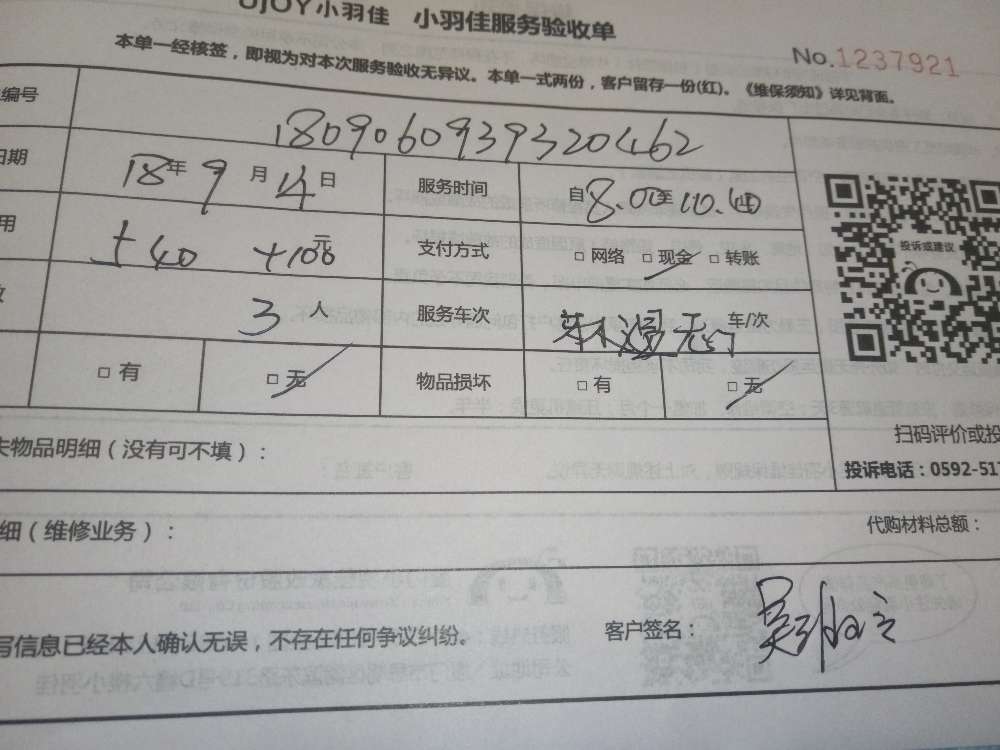 UJOY小羽佳 小羽佳服务验收单
No.1237921
本单一经核签，即视为对本次服务验收无异议。本单一式两份，客户留存一份(红)。《维保须知》详见背面。
编号 180906093932 0462
日期 18年9月14日 服务时间 自8.00至10.40
用 +40 +100元 支付方式 □网络 □现金 □转账
3人 服务车次 车/次
□有 □无 物品损坏 □有 □无
投诉或建议
失物品明细（没有可不填）：
扫码评价或投
投诉电话：0592-517
细（维修业务）：
代购材料总额：
写信息已经本人确认无误，不存在任何争议纠纷。 客户签名：吴